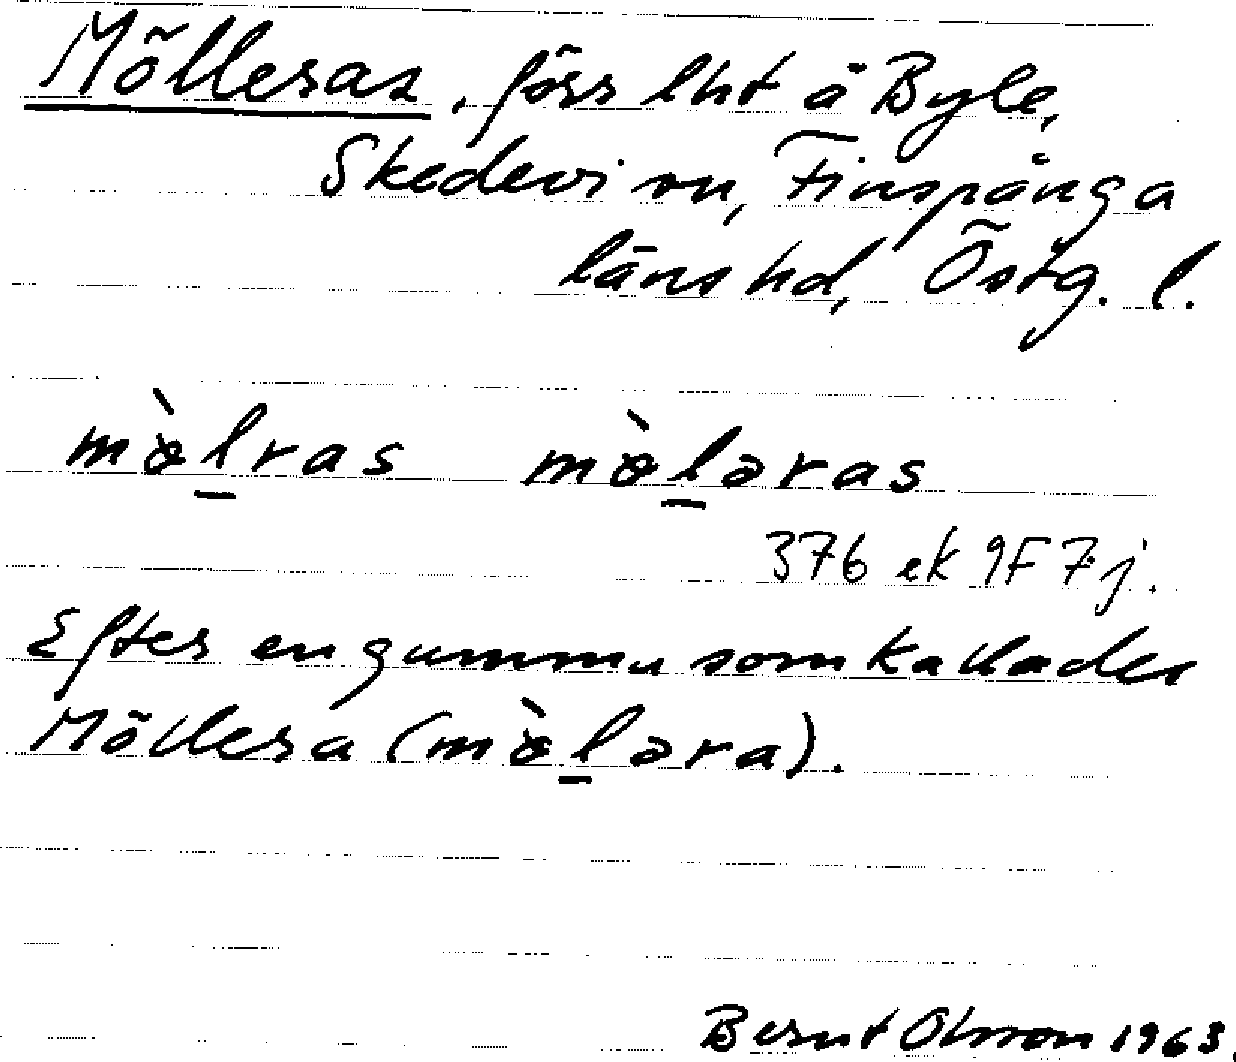 Mölleras, förr lht å Byle,
Skedevi sn, Finspånga
läns hd, Östg. l.
mø̀l̲ras mø̀l̲əras
376 ek 9F 7j.
Efter en gumma som kallades
Möllera (mø̀l̲əra).
Bernt Olsson 1963.